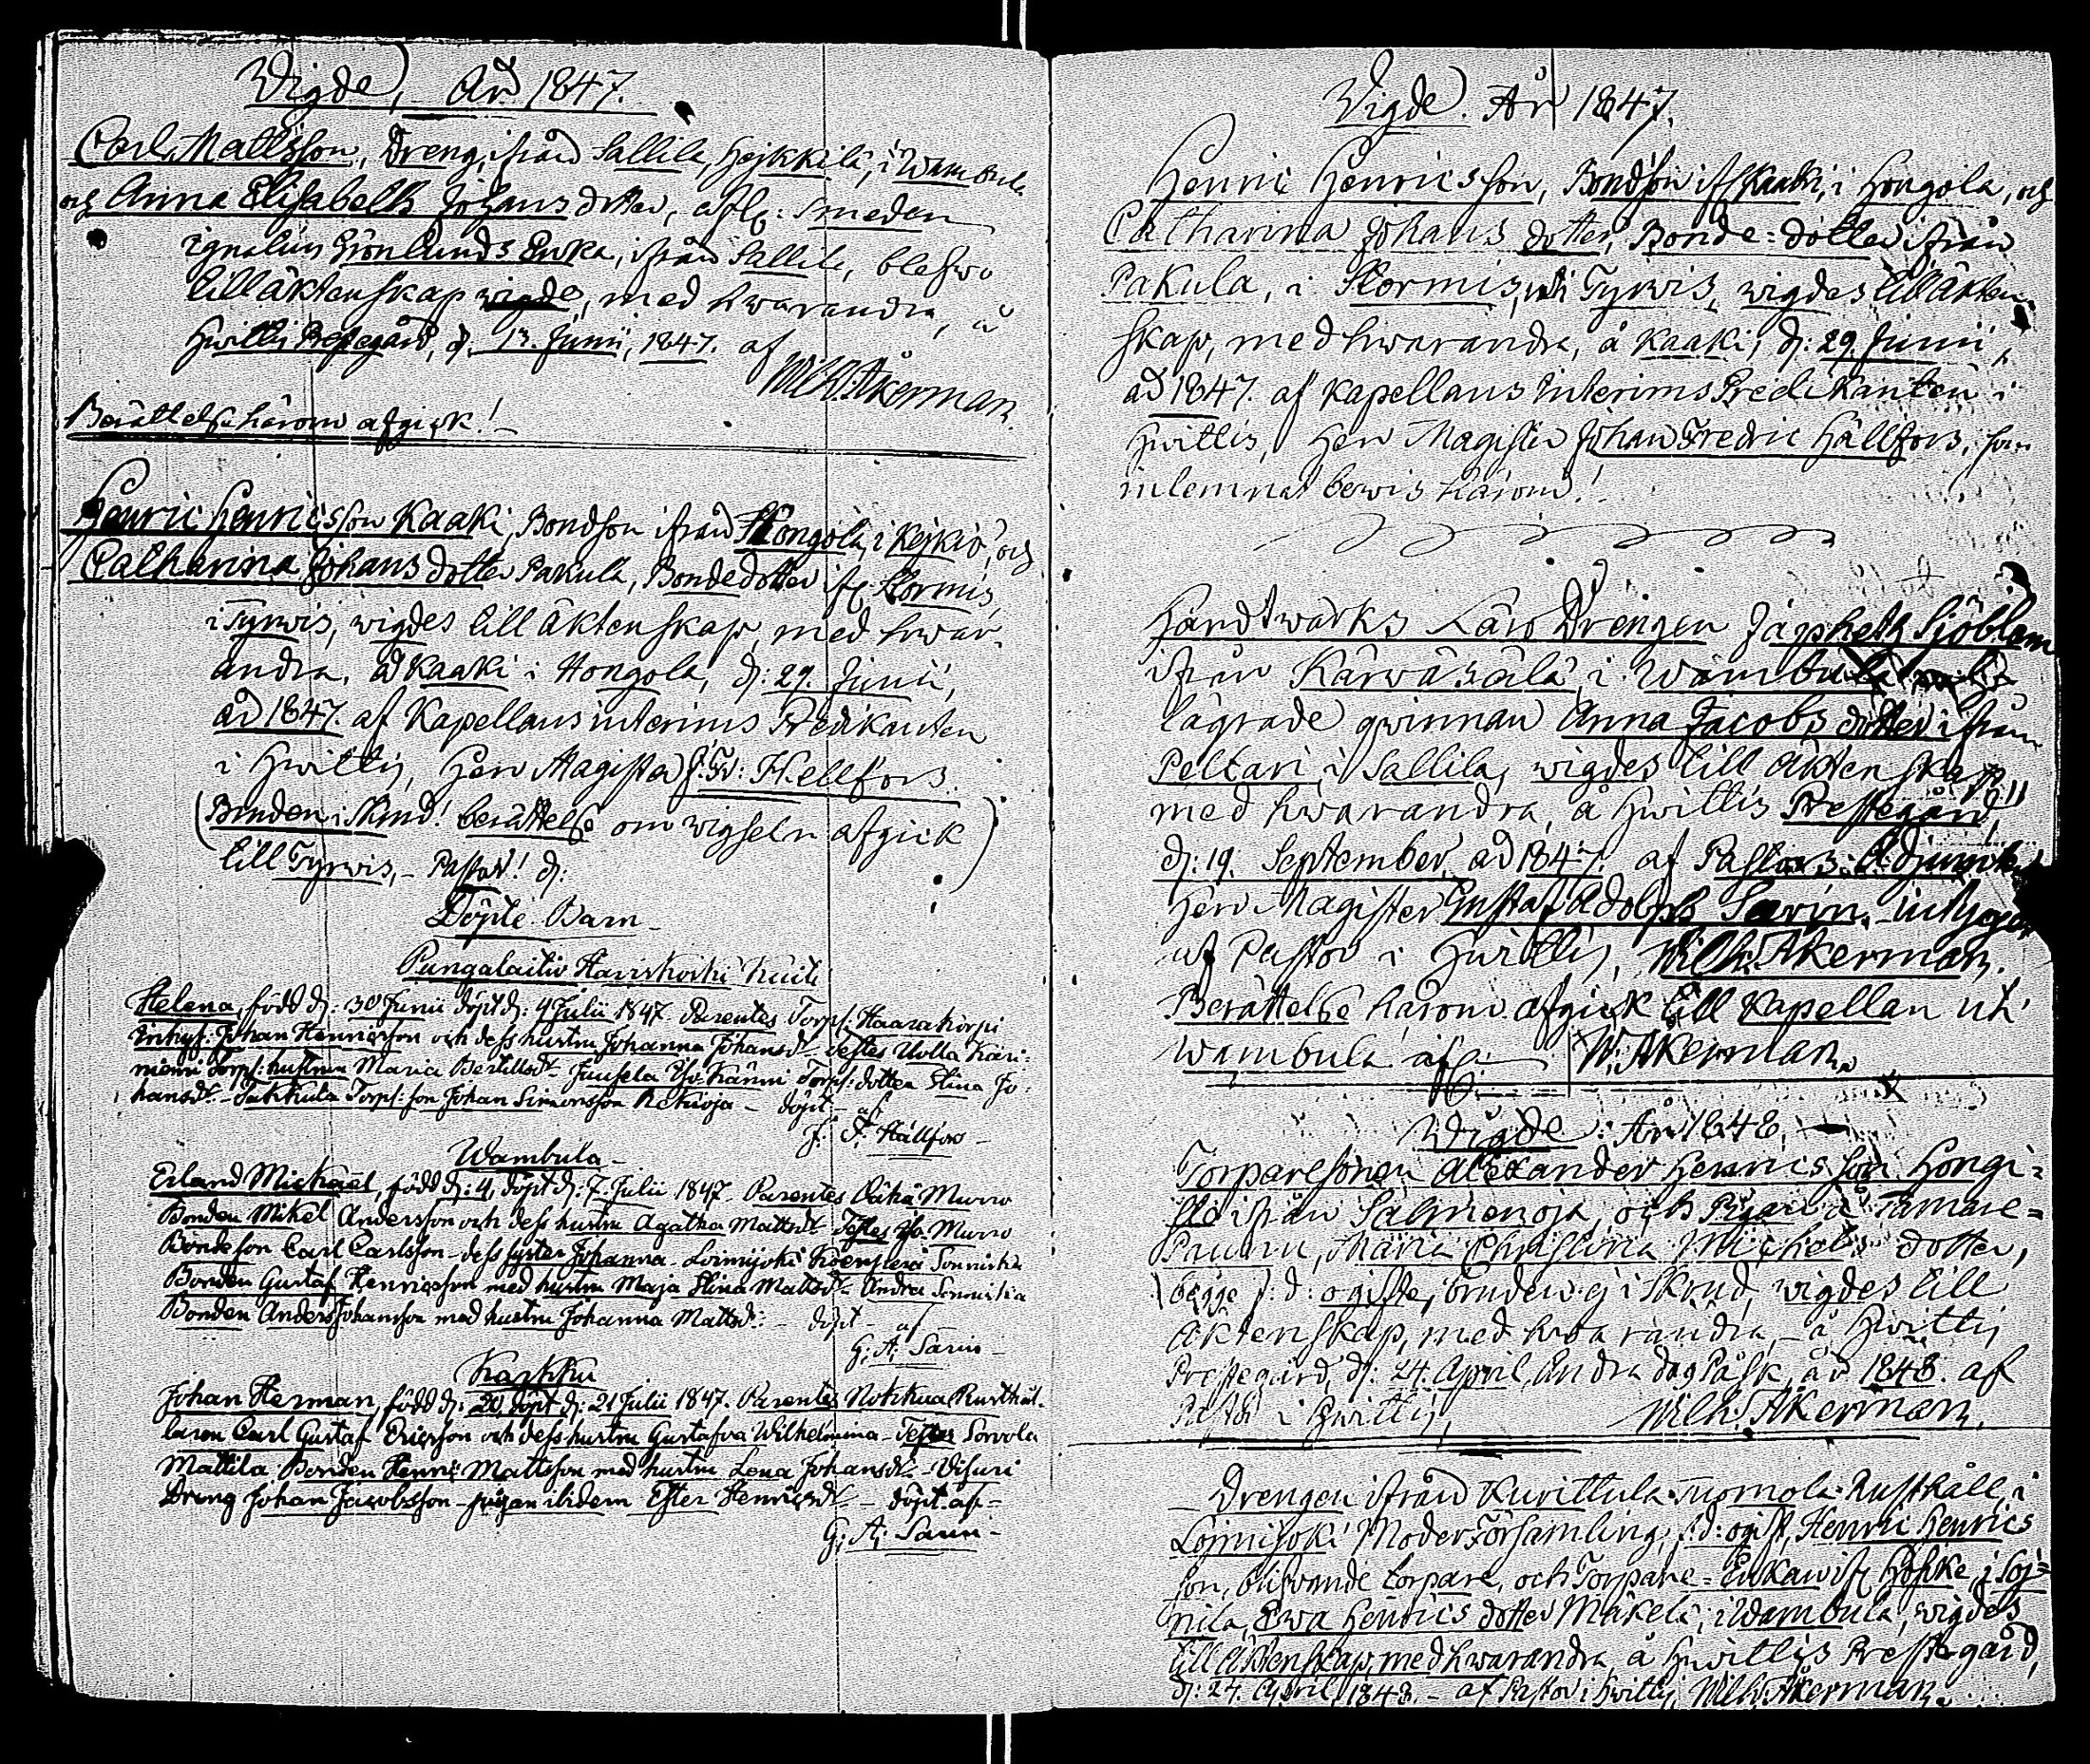 Vigde, År 1847.
Carl Mattsson, Dreng, ifrån Sallila, Hejkkilä, i Wambula
och Anna Elisabeth Johans dotter, afl: Smeden
Ignatius Grönlunds Enka, ifrån Sallila, blefwo
till äktenskap wigde, med hwarandra, å
Hwittis Prestegård, d. 13. Junii, 1847. af
Wilh: Åkerman.
Berättelse härom afgick!
Henric Henricsson Kaaki, Bondson ifrån Hongola, i Kejkiö, och
Catharina Johans dotter Pakula, Bondedotter ifr. Stormis,
i Tyrwis, wigdes till äktenskap, med hwar-
andra, å Kaaki i Hongola, d: 29. Junii,
åd 1847. af Kapellans interims Predikanten
i Hwittis, Herr Magister J. Fr: Hellfors.
(Bruden i Skrud! berättelse om wigseln afgick
till Tyrwis, - Pastor! d:
Döpte Barn
Pungalaitio Harriskoski
Helena, född d: 30 Junii döpt d: 4 Julii 1847. Parentes Torp: Haarakorpi
Inhys: Johan Henricsson och dess hustru Johanna Johansdr - Testes Uolla Käri-
niemi Torp: hustrun Maria Bertillsdr - Juusela Yso-Känni Torp: dotter Stina Jo-
hansdr. - Takkula Torp: son Johan Simonsson Rekioja - döpt - af
J. F. Hällfors -
Wambula -
Erland Mickael, född d: 4, döpt d: 7 Julii 1847 - Parentes Wähä Murro
Bonden Mikel Andersson och dess hustru Agatha Mattsdr Testes Yso-Murro
Bondeson Carl Carlsson - dess syster Johanna - Loimijoki Sonniska
Bonden Gustaf Henricsson med hustru Maja Stina Mattsdr - Andra Sonniska
Bonden Anders Johansson med hustru Johanna Mattsdr: - döpt - af
G: A: Sarin -
Karkku
Johan Herman, född d: 20, döpt d: 21 Julii 1847. Parentes Nokkua Rusthål-
laren Carl Gustaf Ericsson och dess hustru Gustafva Wilhelmina - Testes Sorvola
Mattila Bonden Henric Mattsson med hustru Lena Johansdr - Visuri
Dreng Johan Jacobsson - pigan ibidem Ester Henricsdr - döpt - af -
G: A: Sarin -
Vigde. År 1847.
Henric Henricsson, Bondson ifr. Kaaki, i Hongola, och
Catharina Johans dotter, Bonde-dotter ifrån
Pakula, i Stormis, uti Tyrwis, wigdes till äkten-
skap, med hwarandra, å Kaaki, d: 29. Junii,
åd 1847. af Kapellans Interims Predikanten i
Hwittis, Herr Magister Johan Fredric Hällfors, som
inlemnat bewis härom!
Handtwärks Läro Drengen Japheth Sjöblom
ifrån Kärwäsälä, i Wambula
lägrade qwinnan Anna Jacobs dotter ifrån
Peltari i Sallila, wigdes till äktenskap
med hwarandra, å Hwittis Prestegård,
d: 19. September åd 1847. af Pastors-Adjunkten
Herr Magister Gustaf Adolph Sarin. - intygar
af Pastor i Hwittis, Wilh: Åkerman.
Berättelse härom afgick till Kapellan uti
Wambula W: Åkerman.
Vigde: År 1848.
Torparesonen Alexander Henricsson Hongi-
sto ifrån Salmenoja, och Pigan å Tamare-
Prunnu, Maria Christina Michels dotter,
(begge f: d: ogifte, bruden ej i Skrud, wigdes till
Äktenskap, med hwarandra, å Hwittis
Prestegård, d: 24. April, Andra dag Påsk, åd 1848. af
Pastor i Hwittis, Wilh: Åkerman.
Drengen ifrån Kurittula Tuomola Rusthåll, i
Loimijoki Moderförsamling, f.d: ogift, Henric Henrics
son, blifvande torpare, och Torpare-Enkan ifr Höhke, i Soj-
nila, Ewa Henrics dotter Mäkelä, i Wambula, wigdes
till Äktenskap, med hwarandra, å Hwittis Prestegård,
d: 24. April, 1848. - af Pastor i Hwittis, Wilh: Åkerman.